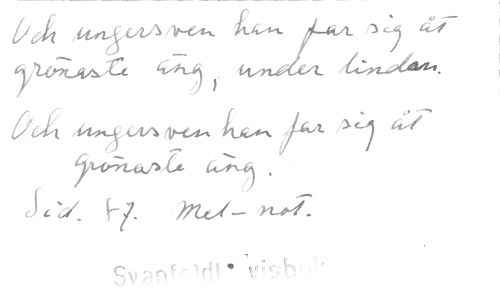 Och ungersven han far sig åt
grönaste äng, under linden.
Och ungersven han far sig åt
grönaste äng.
Sid. 87. Mel-not.
Svanfeldt visbok